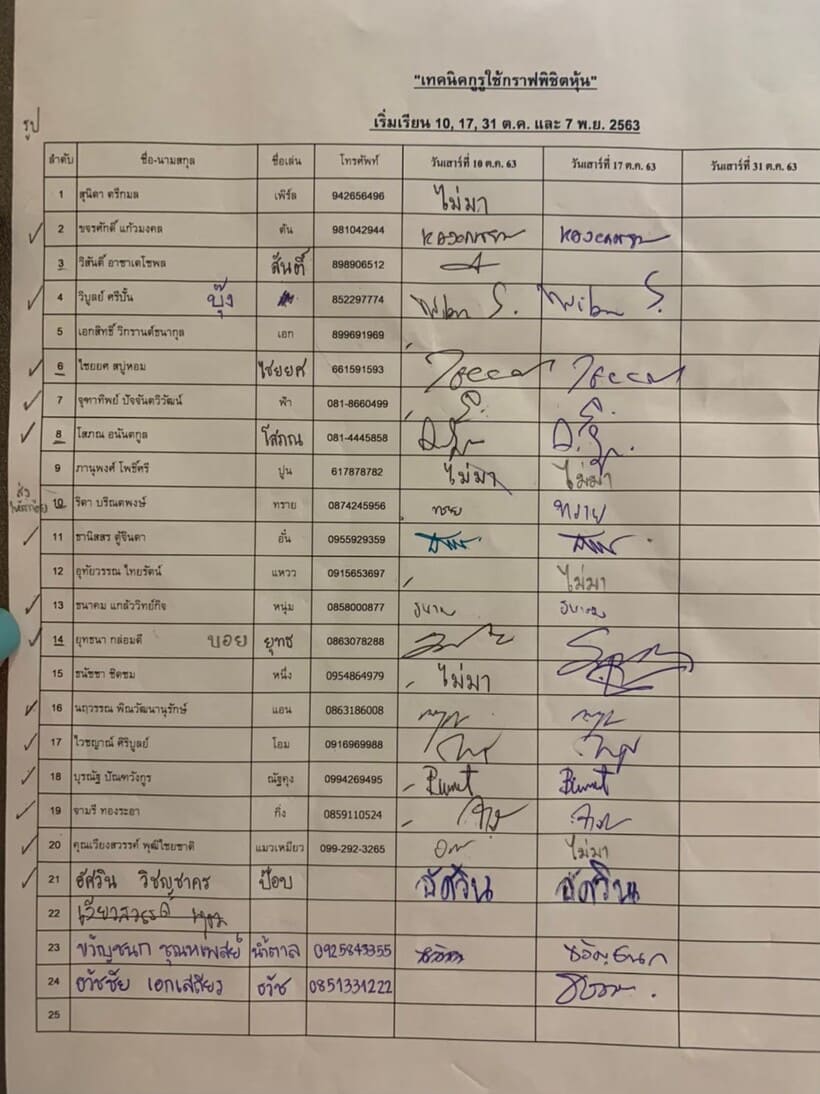 "เทคนิคกูรูใช้กราฟพิชิตหุ้น"
เริ่มเรียน 10, 17, 31 ต.ค. และ 7 พ.ย. 2563
รูป
ลำดับ ชื่อ-นามสกุล ชื่อเล่น โทรศัพท์ วันเสาร์ที่ 10 ต.ค. 63 วันเสาร์ที่ 17 ต.ค. 63 วันเสาร์ที่ 31 ต.ค. 63
1 สุนิดา ตรีกมล เพิร์ล 942656496 ไม่มา
2 ขจรศักดิ์ แก้วมงคล ตัน 981042944
3 วิสันติ์ อาชาเดโชพล สันติ์ 898906512
4 วิบูลย์ ศรีปั้น บุ๊ง 852297774 Wibn S. Wibn S.
5 เอกสิทธิ์ วิกรานต์ธนากุล เอก 899691969
6 ไชยยศ สบู่หอม ไชยยศ 661591593
7 จุฑาทิพย์ ปัจจันตวิวัฒน์ ฟ้า 081-8660499
8 โสภณ อนันตกูล โสภณ 081-4445858
9 ภานุพงศ์ โพธิ์ศรี ปูน 617878782 ไม่มา ไม่มา
10 ริตา บริณตพงษ์ ทราย 0874245956 ทราย ทราย
11 ชานิสสร ตู้จินดา อั๋น 0955929359
12 อุทัยวรรณ ไทยรัตน์ แหวว 0915653697 ไม่มา
13 ธนาคม แกล้ววิทย์กิจ หนุ่ม 0858000877
14 ยุทธนา กล่อมดี บอย ยุทธ 0863078288
15 ธนัชชา ชิดชม หนึ่ง 0954864979 ไม่มา
16 นฤวรรณ พิณวัฒนานุรักษ์ แอน 0863186008
17 ไวชญาณ์ ศิริบูลย์ โอม 0916969988
18 บุรณัฐ ปัณฑวังกูร ณัฐตุง 0994269495
19 จามรี ทองระอา กิ่ง 0859110524
20 คุณเวียงสวรรค์ พุฒิไชยชาติ แมวเหมียว 099-292-3265 ไม่มา
21 อัศวิน วิชญชาคร ป๊อบ อัศวิน อัศวิน
22
23 ขวัญชนก น้ำตาล 0925843355 ขวัญชนก
24 ธวัชชัย เอกเสถียร ธวัช 0851331222
25